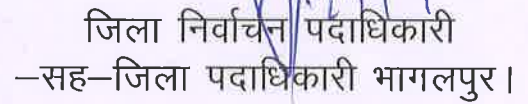 जिला निर्वाचन पदाधिकारी
–सह–जिला पदाधिकारी भागलपुर।